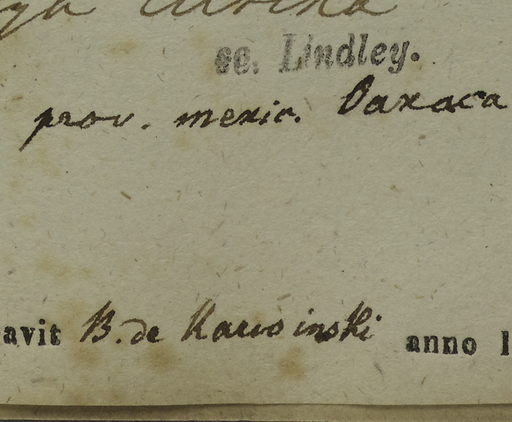 se. Lindley.
prov. mexic. Oaxaca
avit B. de Karwinski anno